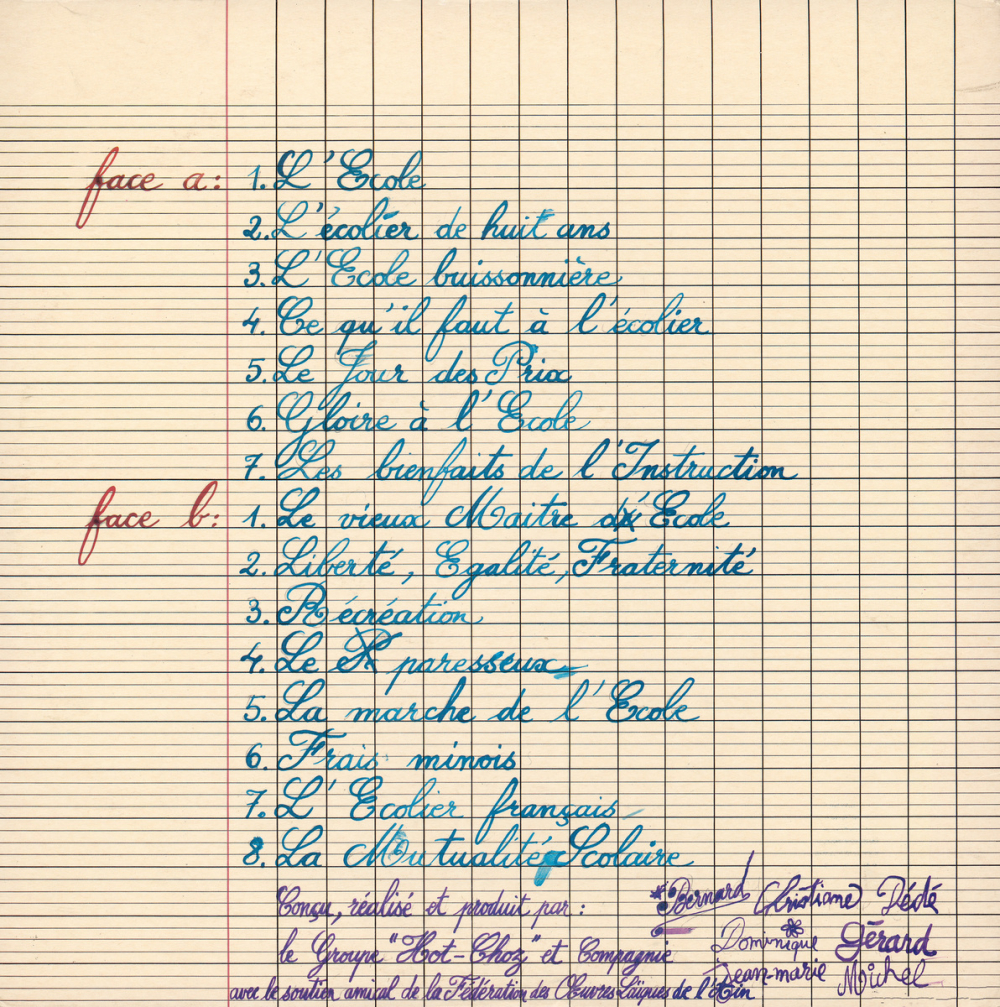 face a: 1. L'Ecole
2. L'écolier de huit ans
3. L'Ecole buissonnière
4. Ce qu'il faut à l'écolier
5. Le Jour des Prix
6. Gloire à l'Ecole
7. Les bienfaits de l'Instruction
face b: 1. Le vieux Maitre d'Ecole
2. Liberté, Egalité, Fraternité
3. Récréation
4. Le paresseux
5. La marche de l'Ecole
6. Frais minois
7. L'Ecolier français
8. La Mutualité Scolaire
Conçu, réalisé et produit par : Bernard Christiane Dédé
le Groupe "Hot-Choz" et Compagnie Dominique Gérard
Jean-marie Michel
avec le soutien amical de la Fédération des Œuvres Laïques de l'Ain